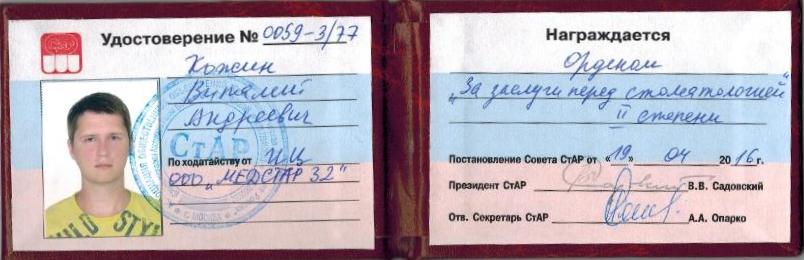 Удостоверение № 0059-3/77
Кожин
Виталий
Андреевич
СтАР
г. МОСКВА
По ходатайству от ИЦ
ООО „МЕДСТАР 32"
Награждается
Орденом
„За заслуги перед стоматологией"
II степени
Постановление Совета СтАР от «19» 04 2016 г.
Президент СтАР В.В. Садовский
Отв. Секретарь СтАР А.А. Опарко